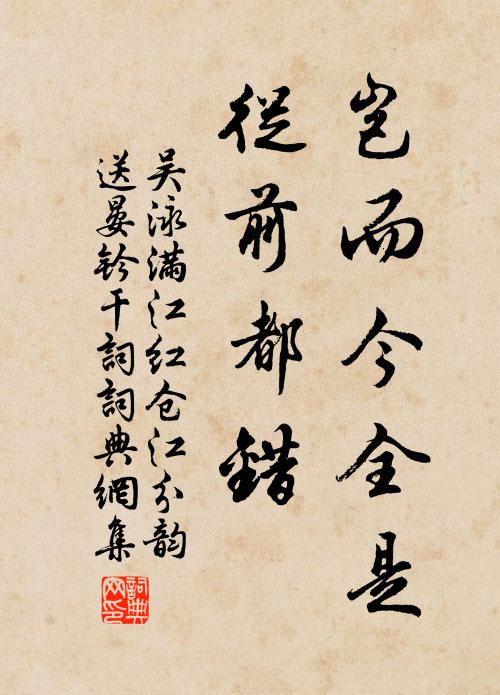 岂而今全是
從前都錯
吴泳满江红仓江分韵
送晏鈐干詞詞典網集
詞典网印